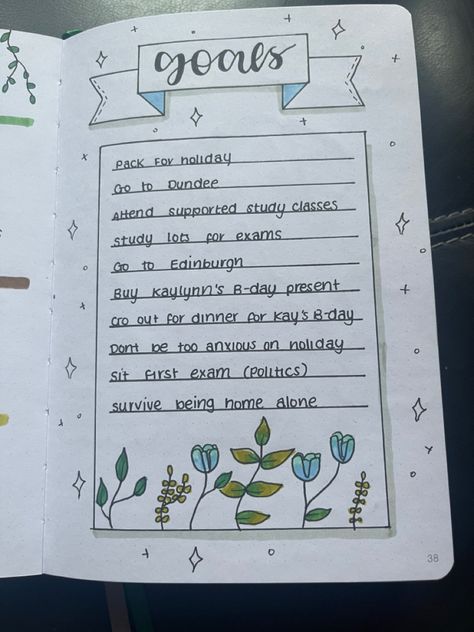 goals
Pack for holiday
Go to Dundee
Attend supported study classes
study lots for exams
Go to Edinburgh
Buy Kaylynn's B-day present
Go out for dinner for Kay's B-day
Dont be too anxious on holiday
Sit first exam (Politics)
survive being home alone
38